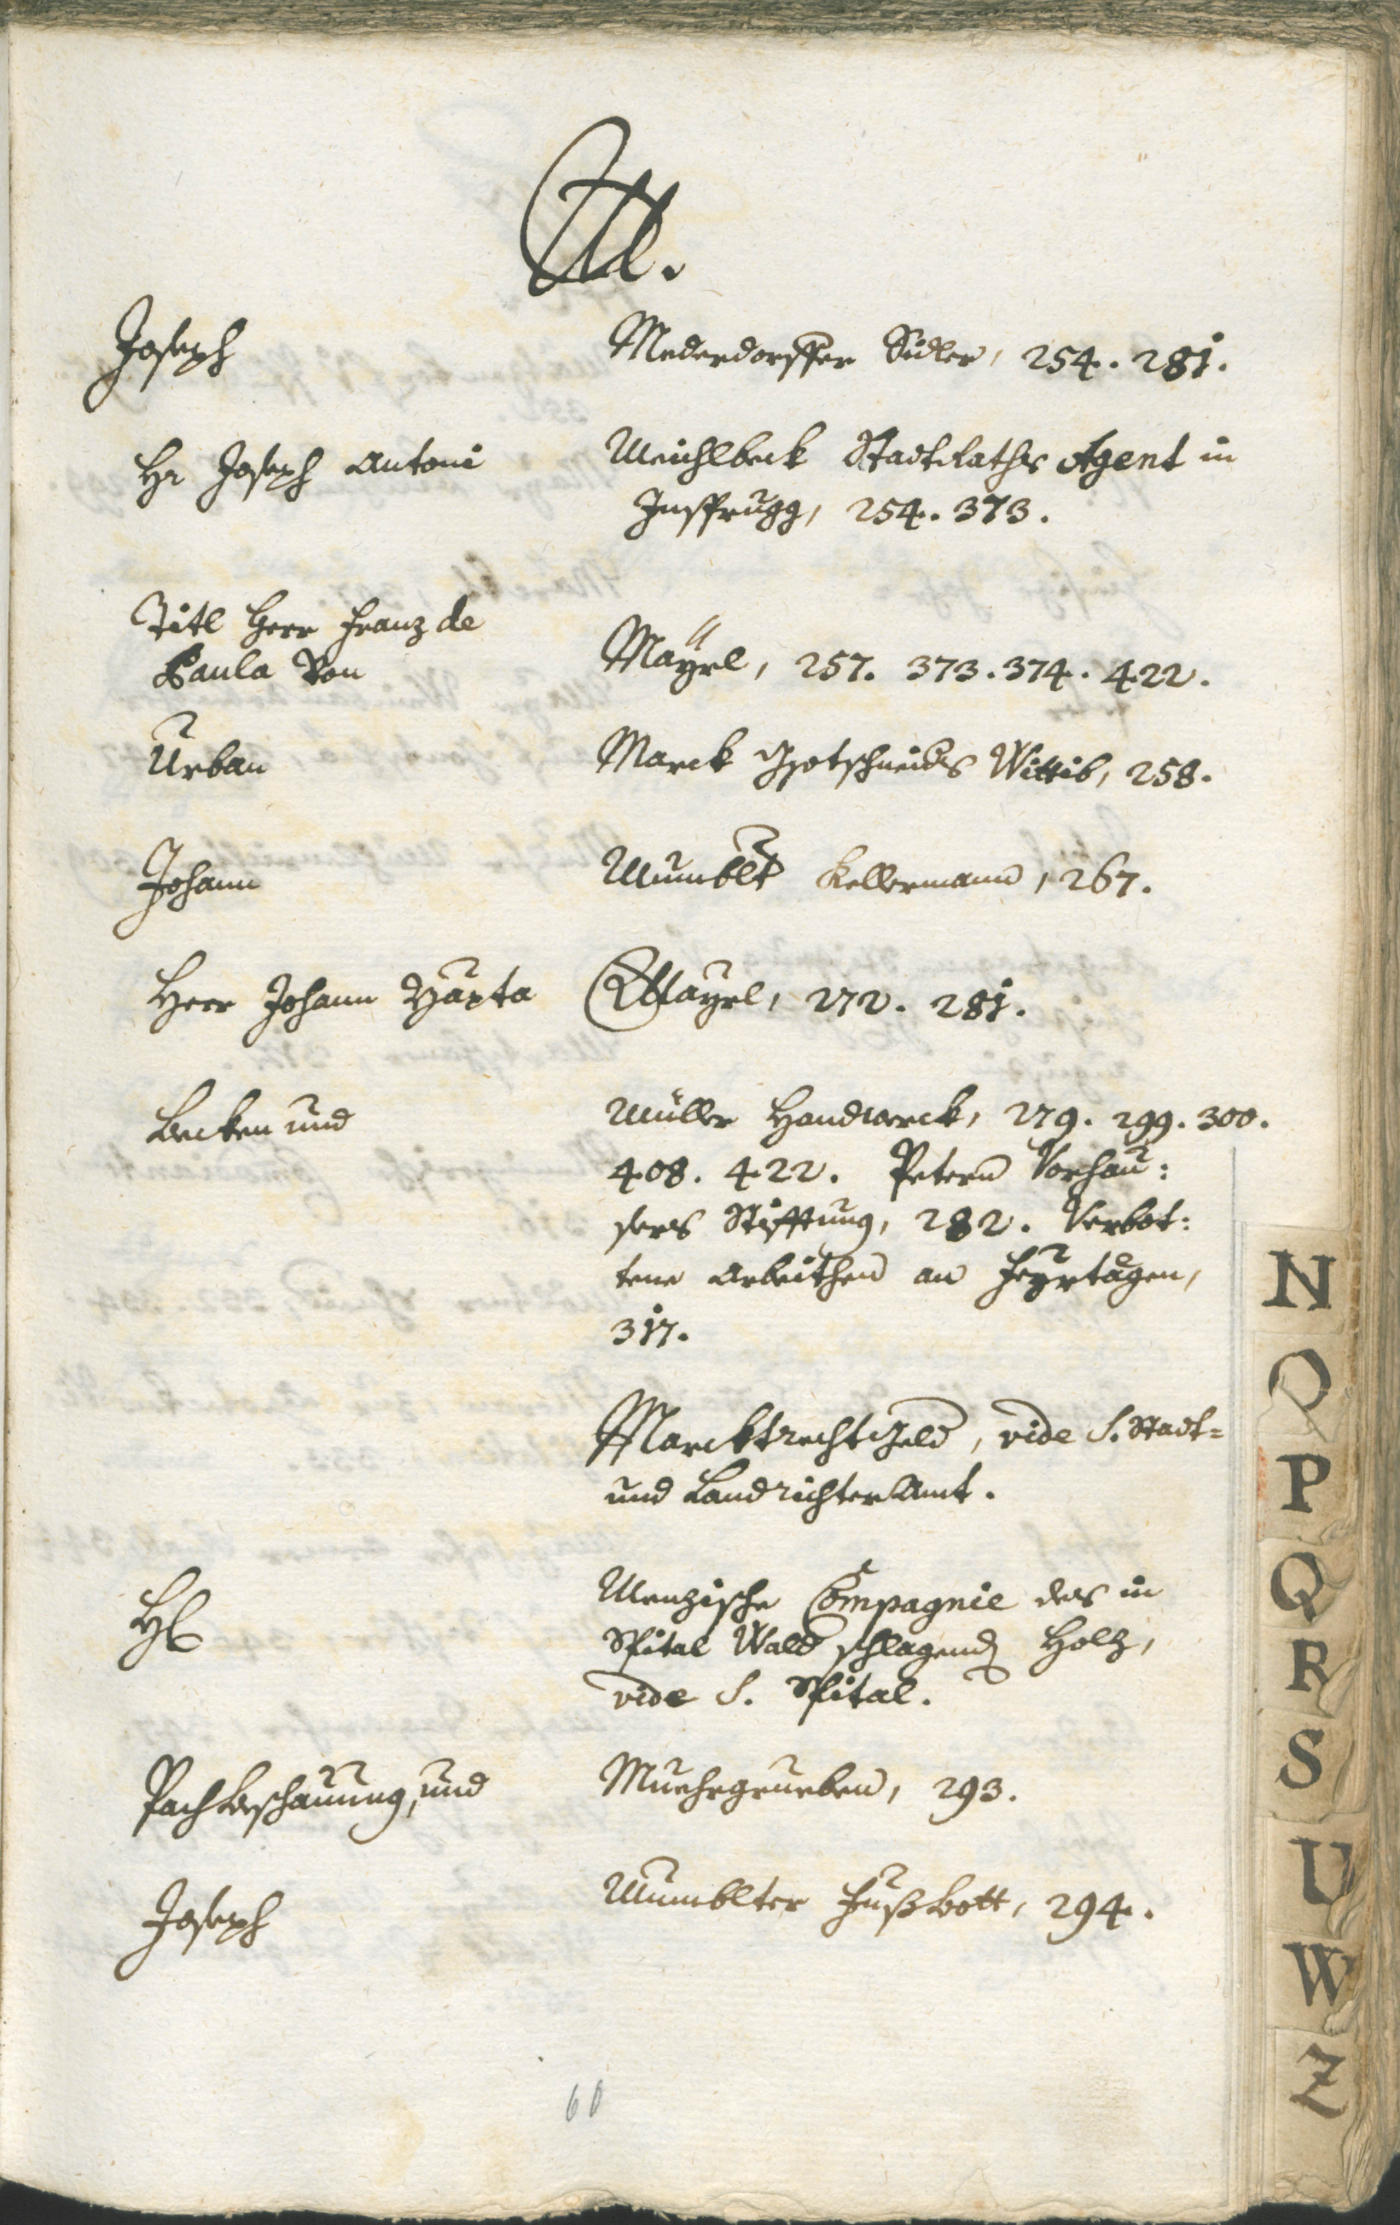 M.
Joseph Mederdorffer Sidler, 254. 281.
Hr Joseph Antoni Meichlbeck StadtRaths Agent in
Insprugg, 254. 373.
Titl Herr Franz de
Paula Von Mayrl, 257. 373. 374. 422.
Urban Marck Wittib, 258.
Johann Mumblt Kellermann, 267.
Herr Johann Bapta Mayrl, 272. 281.
Becken und Müller Handwerck, 279. 299. 300.
408. 422. Petern Vorhau:
sers Stifftung, 282. Verbot:
tene Arbeithen an Feyrtägen,
317.
MarcktrechtGeld, vide S. Stadt=
und LandrichterAmt.
Menzische Compagnie des in
Spital Wald schlagend Holz,
vide S. Spital.
Pachbeschauung, und Muehrgrueben, 293.
Joseph Mumblter Fußbott, 294.
60
N
O
P
Q
R
S
U
W
Z